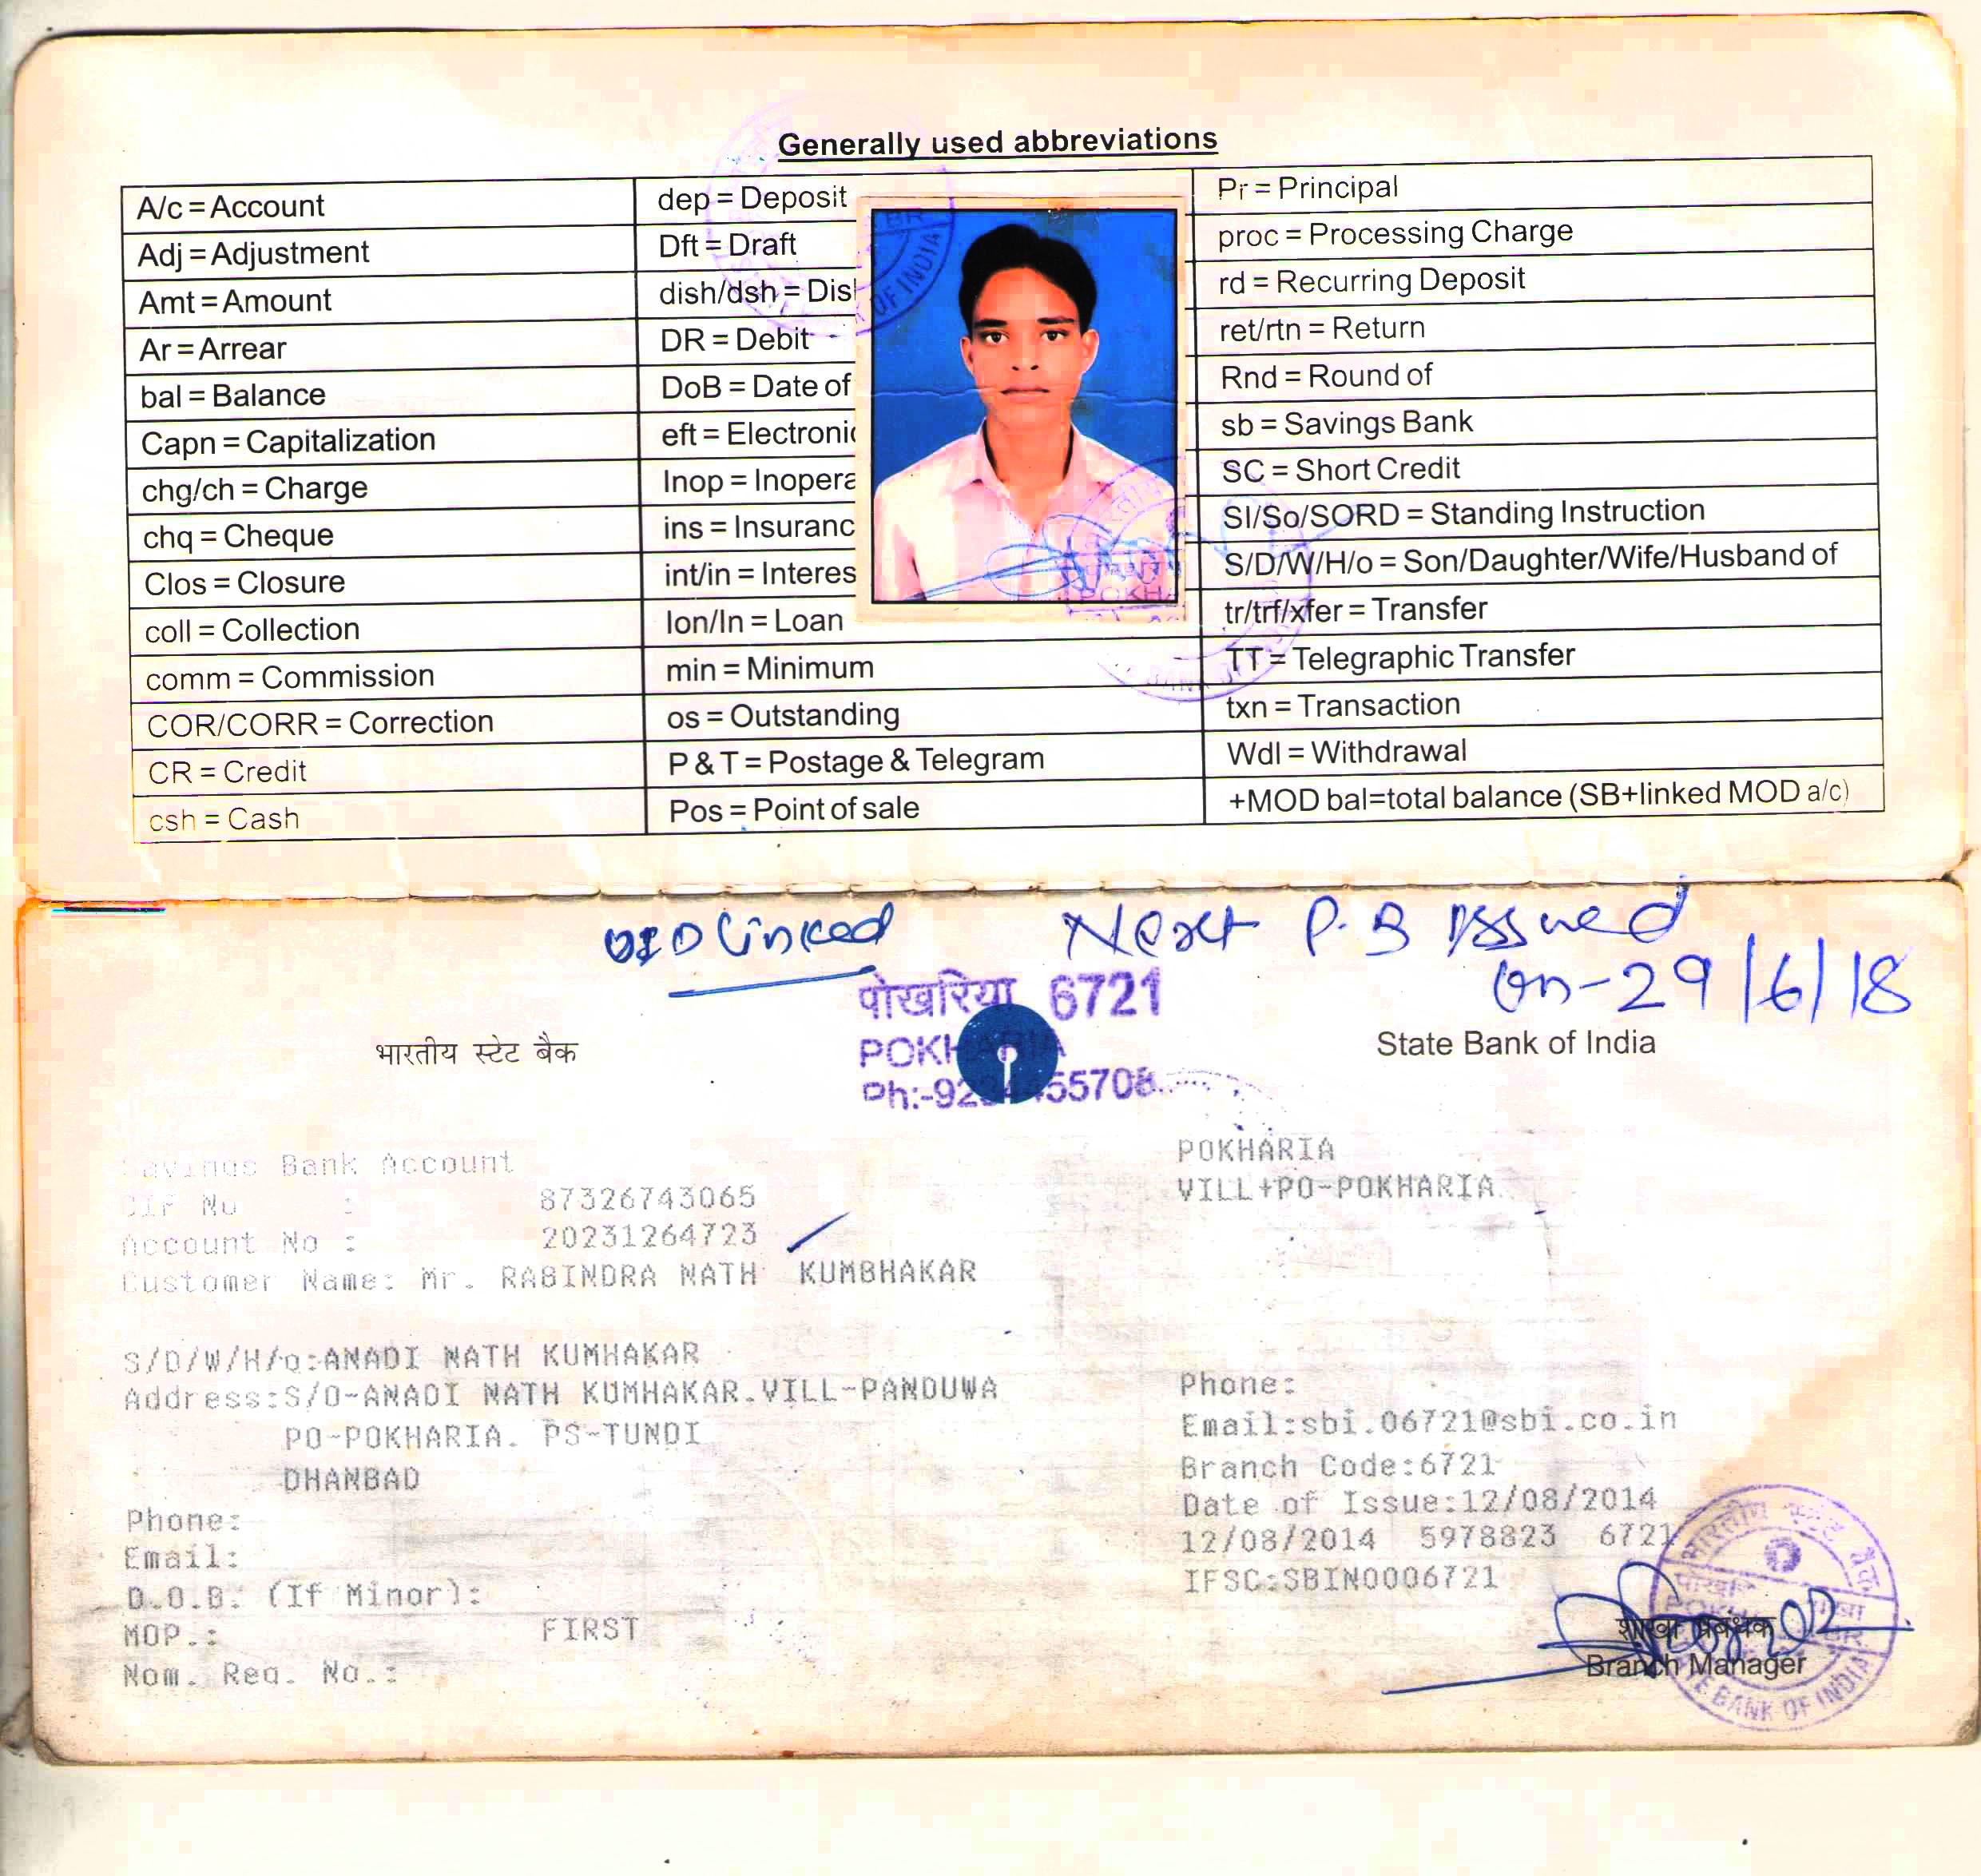 Generally used abbreviations
A/c = Account
Adj = Adjustment
Amt = Amount
Ar = Arrear
bal = Balance
Capn = Capitalization
chg/ch = Charge
chq = Cheque
Clos = Closure
coll = Collection
comm = Commission
COR/CORR = Correction
CR = Credit
csh = Cash
dep = Deposit
Dft = Draft
dish/dsh = Dis
DR = Debit
DoB = Date of
eft = Electronic
Inop = Inopera
ins = Insuranc
int/in = Interes
lon/ln = Loan
min = Minimum
os = Outstanding
P & T = Postage & Telegram
Pos = Point of sale
Pr = Principal
proc = Processing Charge
rd = Recurring Deposit
ret/rtn = Return
Rnd = Round of
sb = Savings Bank
SC = Short Credit
SI/So/SORD = Standing Instruction
S/D/W/H/o = Son/Daughter/Wife/Husband of
tr/trf/xfer = Transfer
TT = Telegraphic Transfer
txn = Transaction
Wdl = Withdrawal
+MOD bal=total balance (SB+linked MOD a/c)
OF INDIA
UID Linked
Next P.B issued
on-29/6/18
पोखरिया 6721
POKHARIA
भारतीय स्टेट बैंक
State Bank of India
Savings Bank Account
CIF No : 87326743065
Account No : 20231264723
Customer Name: Mr. RABINDRA NATH KUMBHAKAR
S/D/W/H/o:ANADI NATH KUMHAKAR
Address:S/O-ANADI NATH KUMHAKAR.VILL-PANDUWA
PO-POKHARIA. PS-TUNDI
DHANBAD
Phone:
Email:
D.O.B. (If Minor):
MOP.: FIRST
Nom. Reg. No.:
POKHARIA
VILL+PO-POKHARIA
Phone:
Email:sbi.06721@sbi.co.in
Branch Code:6721
Date of Issue:12/08/2014
12/08/2014 5978823 6721
IFSC:SBIN0006721
शाखा प्रबंधक
Branch Manager
भारतीय स्टेट बैंक
STATE BANK OF INDIA